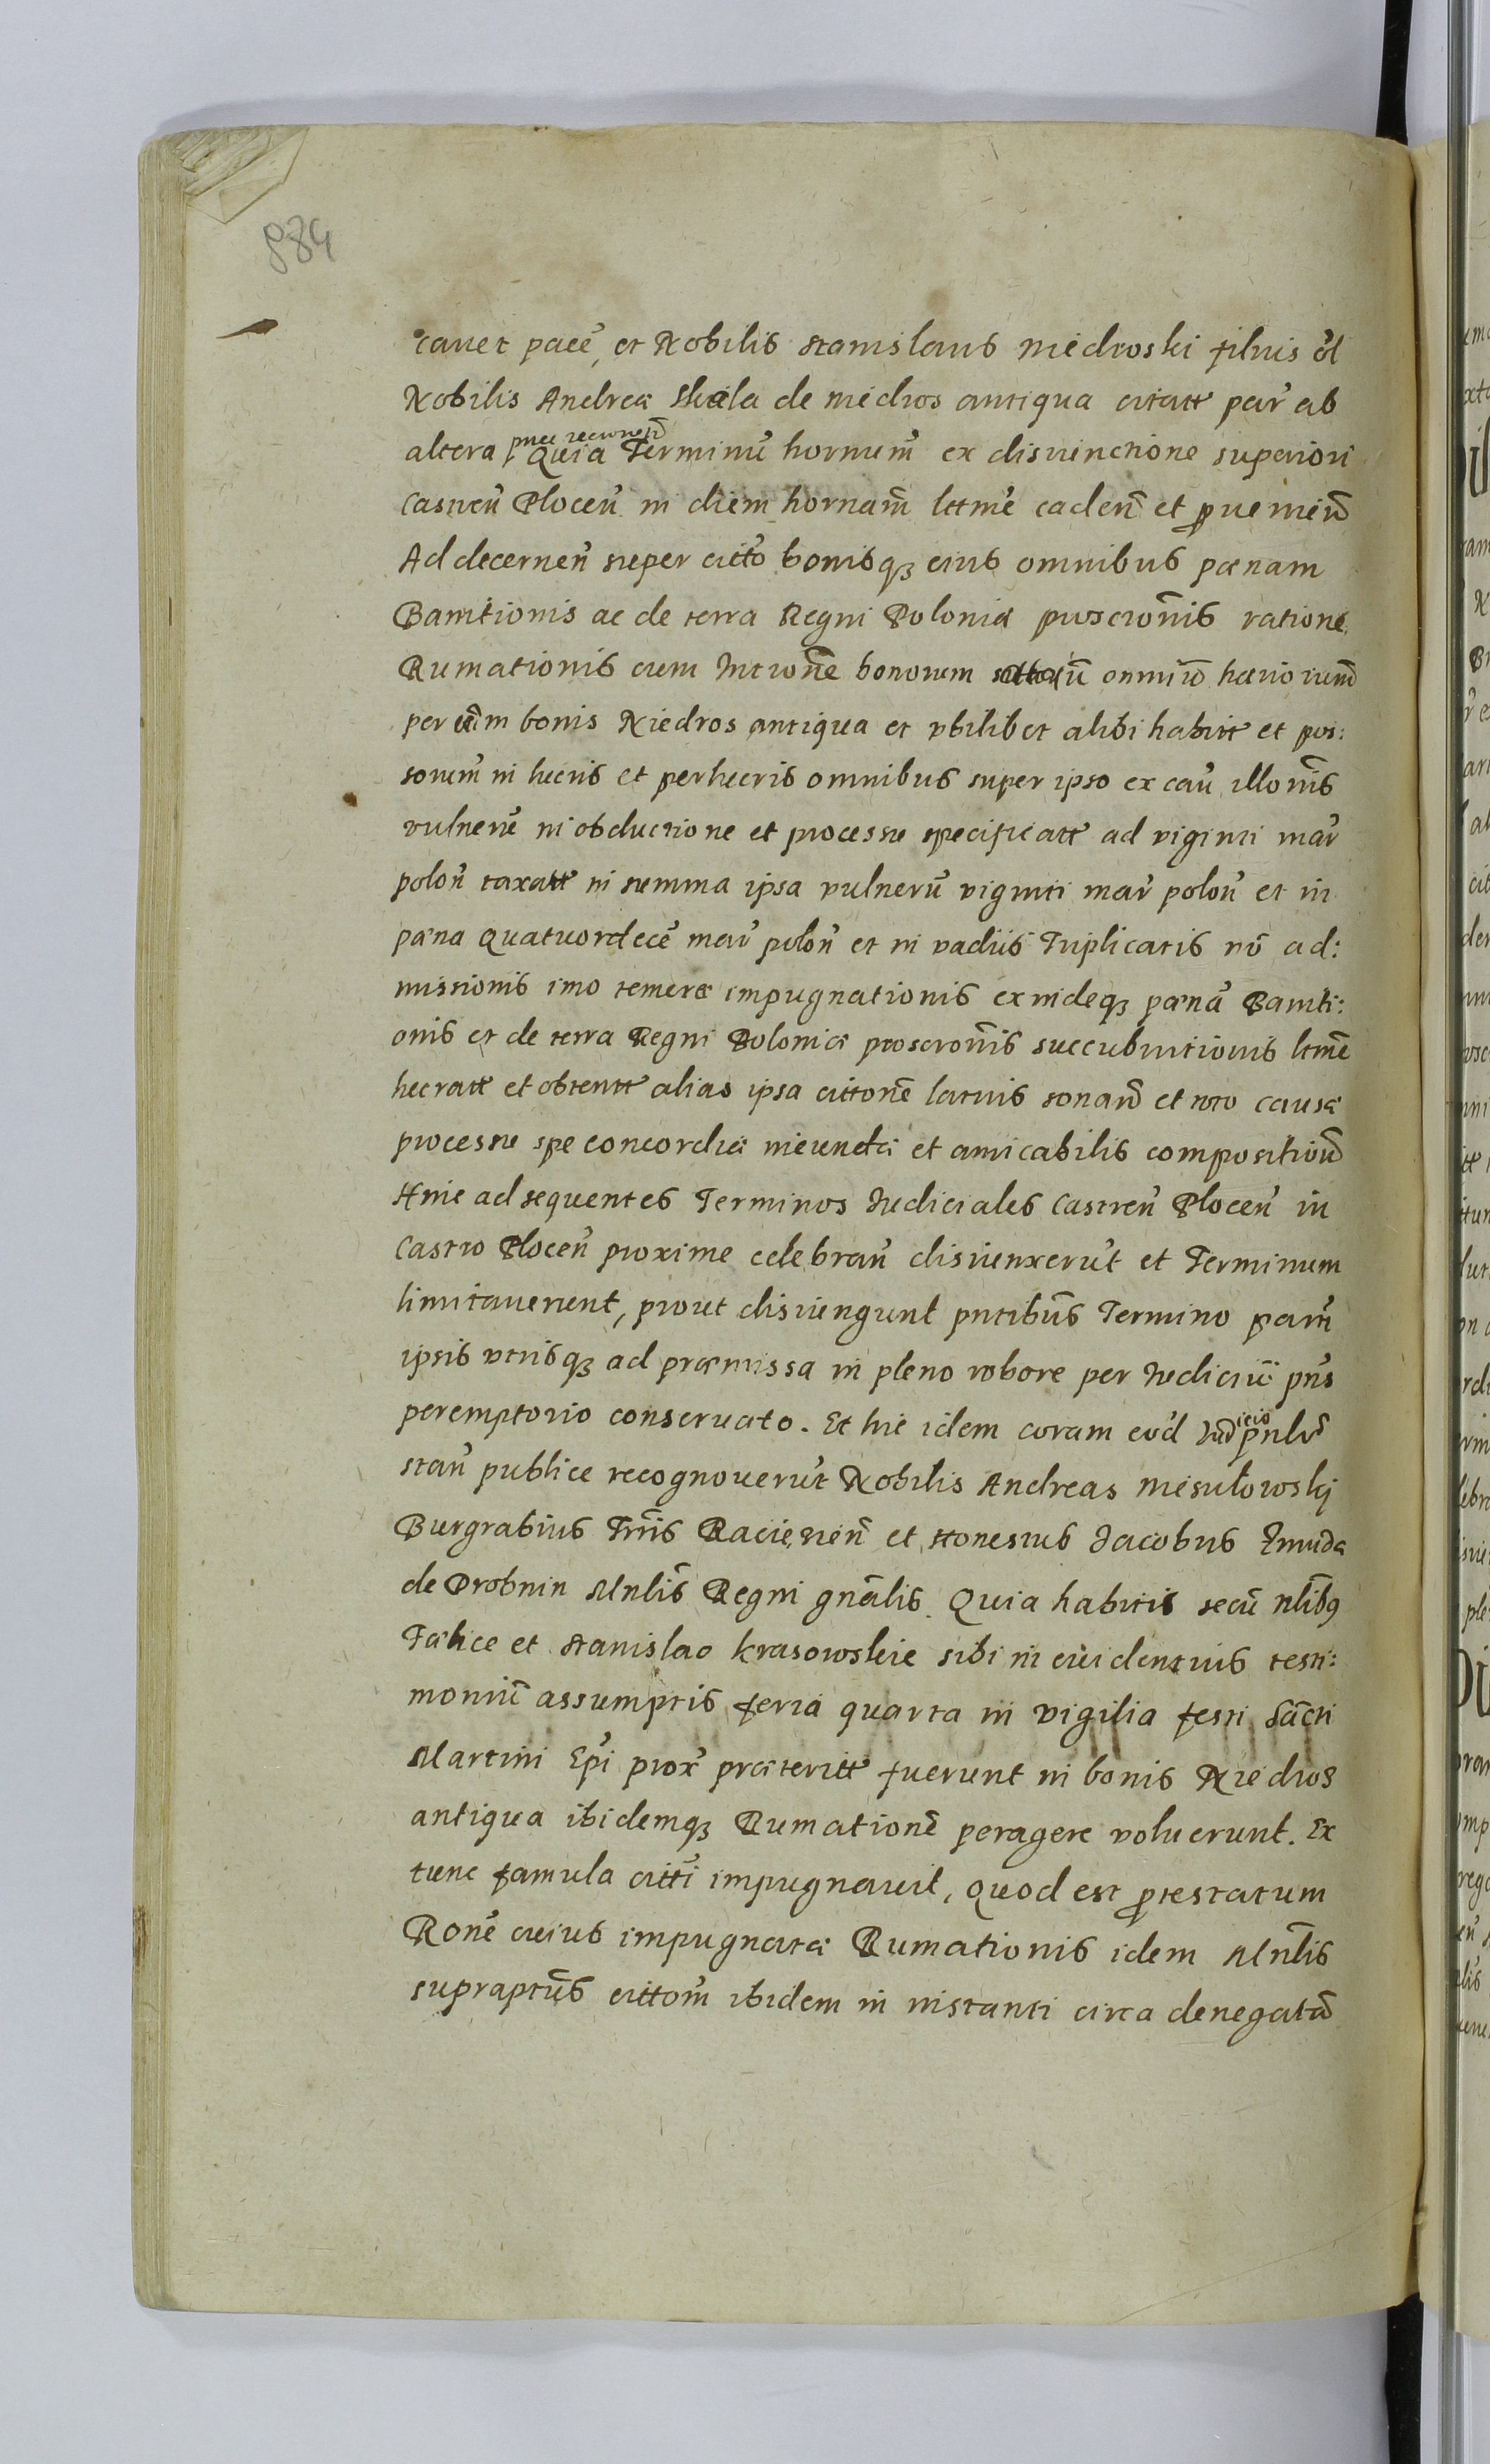 884
cauet pacē et Nobilis Stanislaus Niedroski filius ol̄
Nobilis Andreæ Skala de Niedros antiqua citatt par̄ ab
altera
Quia Terminū hornum̄ ex disiunctione superiori
Castren̄ Plocen̄ in diem hornam̄ lttme caden̄ et prouenien̄
Ad decernen̄ super citto bonisqʒ eius omnibus pœnam
Bannitionis ac de terra Regni Poloniæ proscronis ratione
Rumationis cum Intrōne bonorum omniū hæriorum̄
per eūm bonis Niedros antiqua et vbilibet alibi habitt et pos:
sorum̄ in lucris et perlucris omnibus super ipso ex cau illonis
vulnerū in obductione et processu specificatt ad viginti mar̄
polon̄ taxatt in summa ipsa vulnerū viginti mar̄ polon̄ et in
pœna quatuordecē mar̄ polon̄ et in vadiis Triplicatis nō ad:
missionis imo temeræ impugnationis exindeqʒ pœnā Banniti:
onis et de terra Regni Poloniæ proscronis succubuitionis ltmē
lucratt et obtentt alias ipsa cittonē latius sonan̄ et toto causæ
processu spe concordiæ ineundæ et amicabilis compositioīs
Hinc ad sequentes Terminos Iudiciales Castren̄ Plocen̄ in
Castro Plocen̄ proxime celebran̄ disiunxerūt et Terminum
limitauerunt, prout disiungunt pntibūs Termino partī
ipsis vtrisqʒ ad præmissa in pleno robore per Iudiciū pn̄s
peremptorio conseruato. Et hic idem coram eod̄ Iudicio pnlr̄
stan̄ publice recognouerūt Nobilis Andreas Miszułowskj
Burgrabius Trrīs Raciezien̄ et Honestus Jacobus Zmuda
de Drobnin Mnlis̄ Regni gnālis. Quia habitis secū nlib9
Fœlice et Stanislao Krasowskie sibi in euidentius testi:
moniū assumptis feria quarta in vigilia festi Sāncti
Martini Epī prox̄ præteritt fuerunt in bonis Niedros
antiqua ibidemqʒ Rumationē peragere voluerunt. Ex
tunc famula cittī impugnauit, quod est protestatum
Ronē cuius impugnatæ Rumationis idem Mnlis̄
supraptūs cittom̄ ibidem in instanti circa denegatā